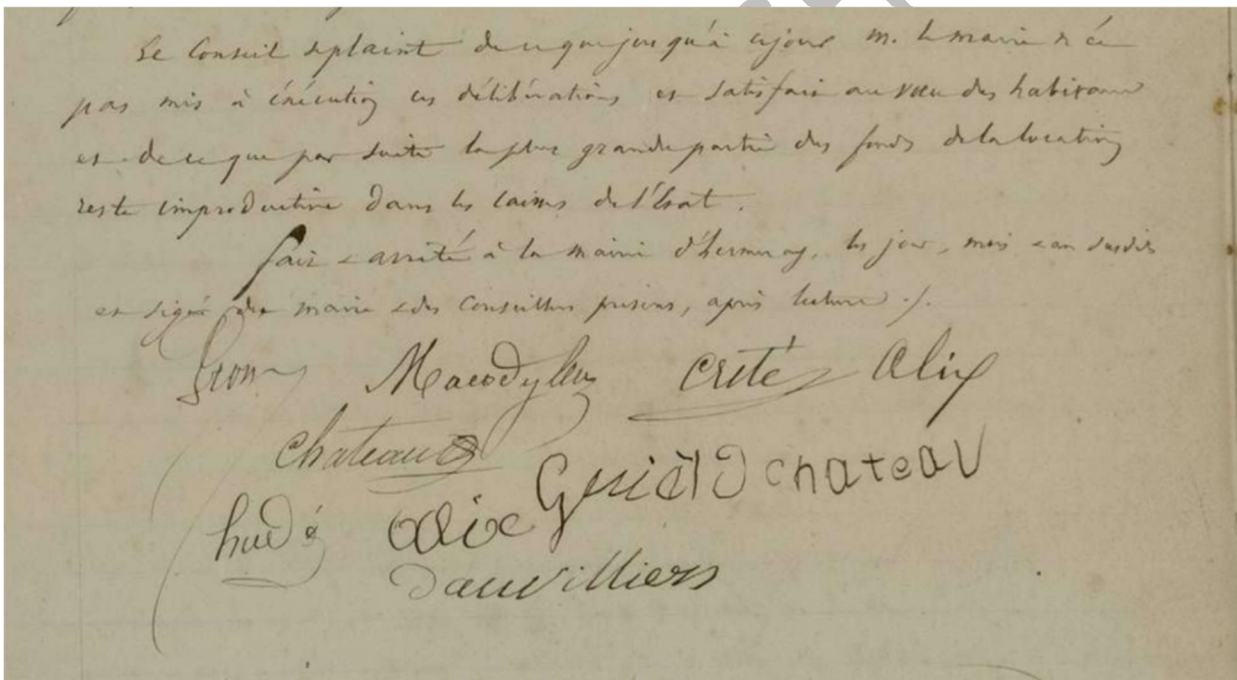 Le Conseil se plaint de ce que jusqu'à ce jour M. le maire n'a
pas mis à exécution ces délibérations et satisfait au vœu des habitans
et de ce que par suite la plus grande partie des fonds de la location
reste improductive dans les caisses de l'état.
fait & arrêté à la mairie d'hermeray, les jour, mois & an susdits
et signé des maire & des Conseillers présens, après lecture ./.
crété Alix
Chateau
Guiel D chateau
hudé alix
Dauvilliers